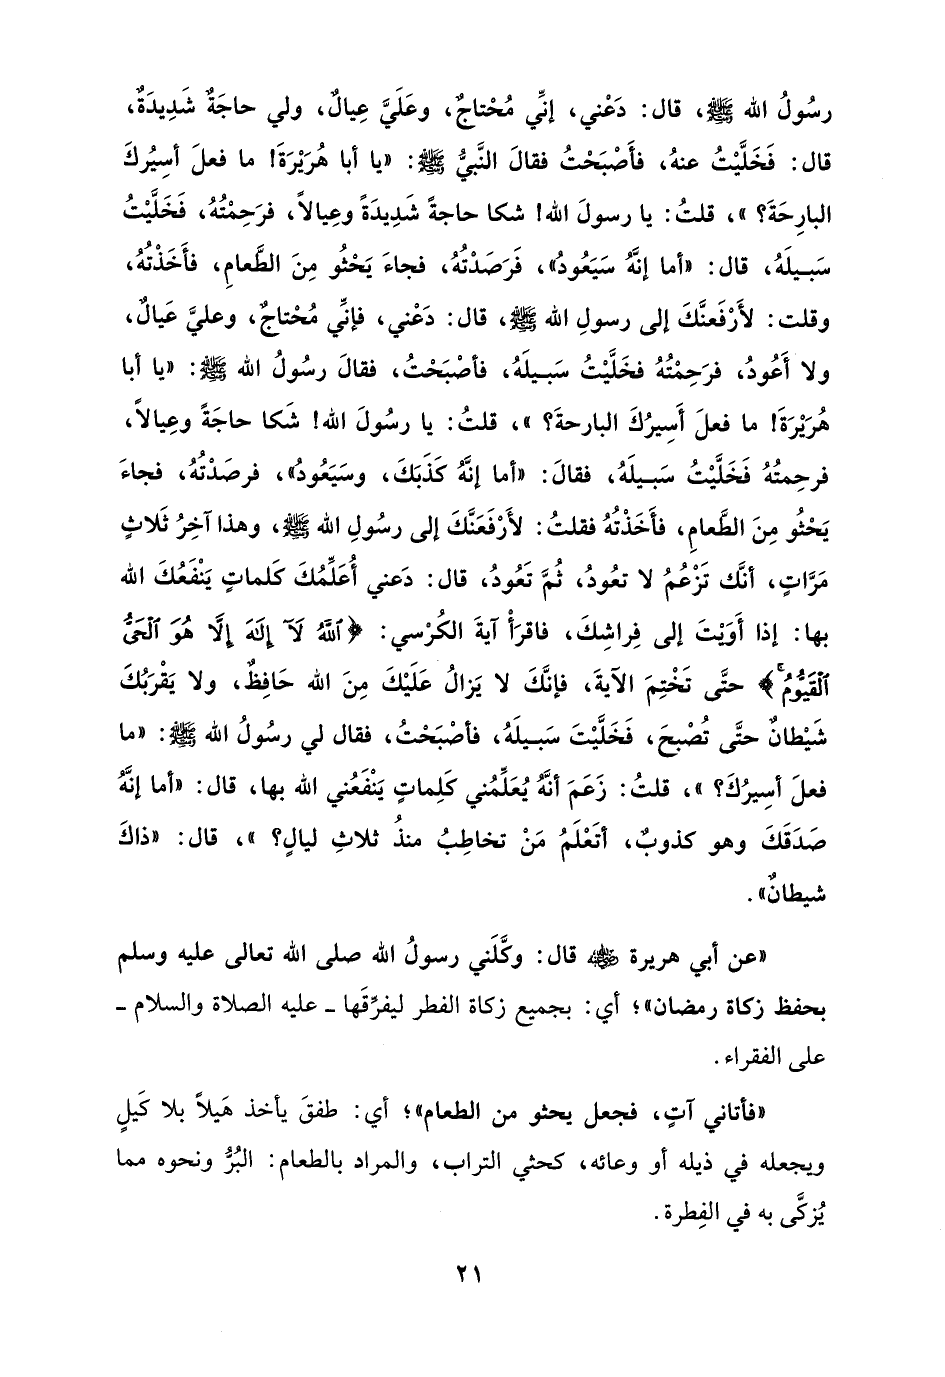 رسُولُ الله ﷺ، قال: دَعْني، إنِّي مُحْتاجٌ، وعَلَيَّ عِيالٌ، ولي حاجَةٌ شَدِيدَةٌ،
قال: فَخَلَّيْتُ عنهُ، فأَصْبَحْتُ فقالَ النَّبيُّ ﷺ: «يا أبا هُرَيْرَةَ! ما فعلَ أسِيْرُكَ
البارِحَةَ؟ »، قلتُ: يا رسولَ الله! شكا حاجةً شَدِيدَةً وعِيالاً، فرَحِمْتُهُ، فَخَلَّيْتُ
سَبـيلَهُ، قال: «أما إنَّهُ سَيَعُودُ»، فَرَصَدْتُهُ، فجاءَ يَحْثُو مِنَ الطَّعامِ، فأَخَذْتُهُ،
وقلت: لأَرْفعنَّكَ إلى رسولِ الله ﷺ، قال: دَعْني، فإنِّي مُحْتاجٌ، وعليَّ عَيالٌ،
ولا أَعُودُ، فرَحِمْتُهُ فخَلَّيْتُ سَبـيلَهُ، فأصْبَحْتُ، فقالَ رسُولُ الله ﷺ: «يا أبا
هُرَيْرَةَ! ما فعلَ أَسِيرُكَ البارحةَ؟ »، قلتُ: يا رسُولَ الله! شَكا حاجَةً وعِيالاً،
فرحِمتُهُ فَخَلَّيْتُ سَبـيلَهُ، فقالَ: «أما إنَّهُ كَذَبَكَ، وسَيَعُودُ»، فرصَدْتُهُ، فجاءَ
يَحْثُو مِنَ الطَّعامِ، فأَخَذْتُهُ فقلتُ: لأَرْفَعَنَّكَ إلى رسُولِ الله ﷺ، وهذا آخِرُ ثَلاثِ
مَرَّاتٍ، أنَّك تَزْعُمُ لا تعُودُ، ثُمَّ تَعُودُ، قال: دَعني أُعَلِّمْكَ كَلماتٍ يَنْفَعُكَ الله
بها: إذا أَوَيْتَ إلى فِراشِكَ، فاقرَأْ آيةَ الكُرْسي: ﴿ٱللَّهُ لَآ إِلَٰهَ إِلَّا هُوَ ٱلْحَىُّ
ٱلْقَيُّومُ ۚ﴾ حتَّى تَخْتِمَ الآيةَ، فإنَّكَ لا يَزالُ عَلَيْكَ مِنَ الله حَافِظٌ، ولا يَقْرَبُكَ
شَيْطانٌ حتَّى تُصْبحَ، فَخَلَّيْتَ سَبـيلَهُ، فأصْبَحْتُ، فقال لي رسُولُ الله ﷺ: «ما
فعلَ أسيرُكَ؟ »، قلتُ: زَعَمَ أنَّهُ يُعَلِّمُني كَلِماتٍ يَنْفَعُني الله بها، قال: «أما إنَّهُ
صَدَقَكَ وهو كذوبٌ، أتَعْلَمُ مَنْ تخاطِبُ منذُ ثلاثِ ليالٍ؟ »، قال: «ذاكَ
شيطانٌ».
«عن أبي هريرة ﵁ قال: وكَّلَني رسولُ الله صلى الله تعالى عليه وسلم
بحفظ زكاة رمضان»؛ أي: بجميع زكاة الفطر ليفرِّقَها ـ عليه الصلاة والسلام ـ
على الفقراء.
«فأتاني آتٍ، فجعل يحثو من الطعام»؛ أي: طفقَ يأخذ هَيلاً بلا كَيلٍ
ويجعله في ذيله أو وعائه، كحثي التراب، والمراد بالطعام: البُرُّ ونحوه مما
يُزكَّى به في الفِطرة.
٢١